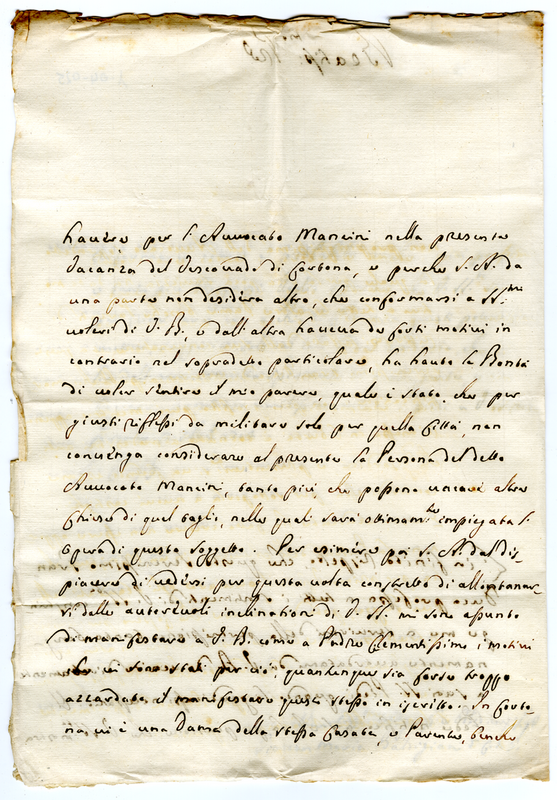 havere per l'Avvocato Mancini nella presente
Vacanza del Vescovado di Cortona, e perche S. A. da
una parte non desidera altro, che conformarsi a SS.mi
voleri di V. B., e dall'altra havendo forti motivi in
contrario nel sopradetto particolare, ha hauto la Bontà
di voler sentire il mio parere, quale è stato, che per
giusti riflessi da militare solo per quella Città, non
convenga considerare al presente la Persona del detto
Avvocato Mancini, tanto più, che possono vacare altre
Chiese di quel taglio, nelle quali sarà ottimam.te impiegata l'
opera di questo soggetto. Per esimere poi S. A. dal dis-
piacere di vedersi per questa volta constretto di allontanar-
si dalle autorevoli inclinationi di V. S. mi sono assunto
di manifestare a V. B. come a Padre Clementissimo i motivi
che vi sono stati per ciò, quantunque sia forse troppo
azzardato il manifestare questi stessi in iscritto. In Corto-
na, vi è una Dama della stessa Casata, e Parente, benche